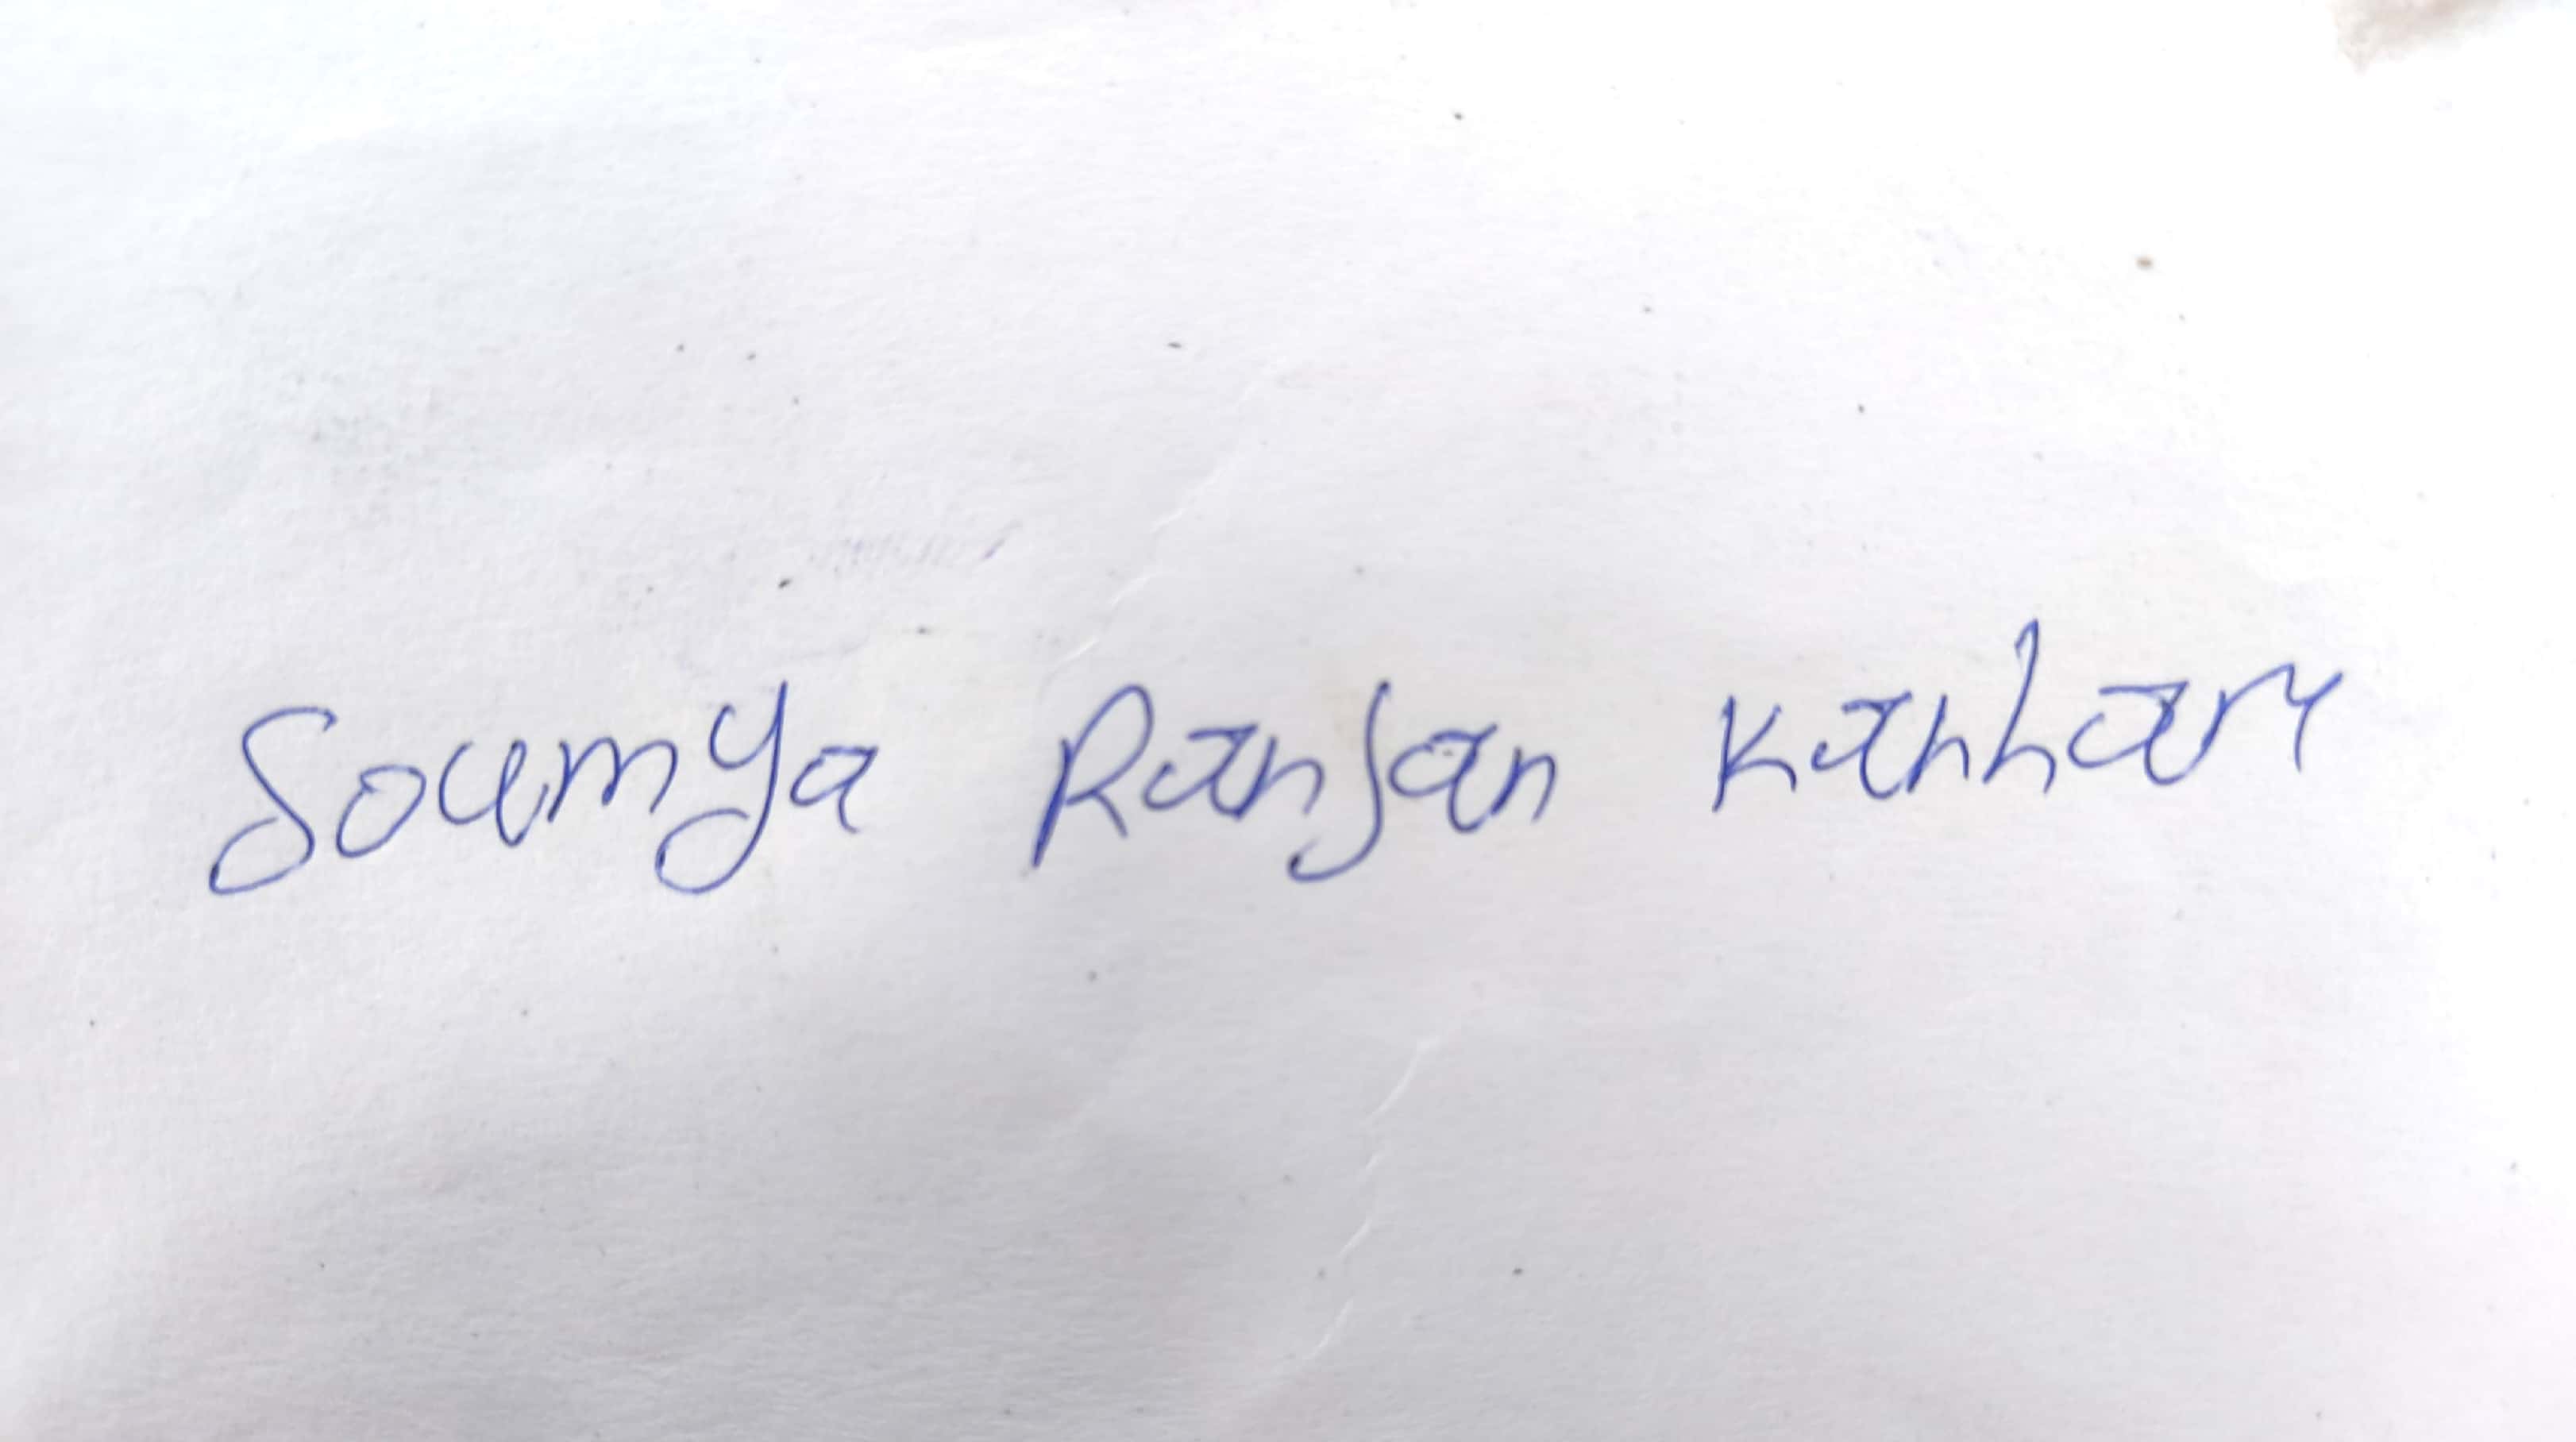 Soumya Ranjan Kanhar